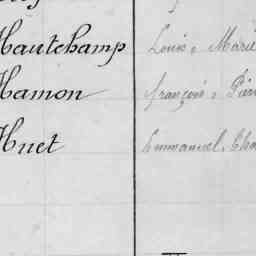 Hautchamp Louis, Marie
Hamon François, Pier
Huet Emmanuel, Cha